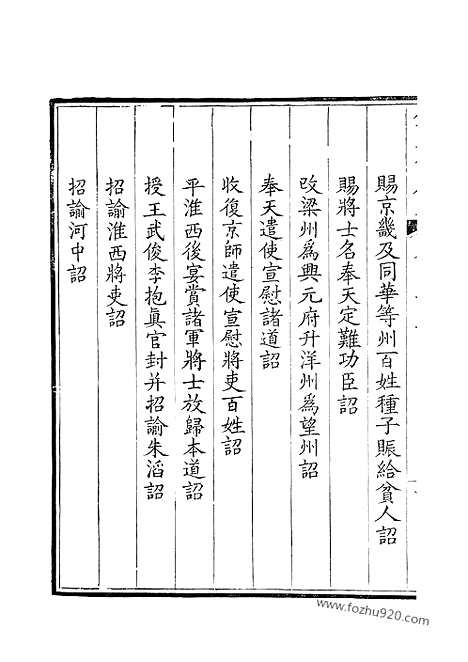 賜京畿及同華等州百姓種子賑給貧人詔
賜將士名奉天定難功臣詔
改梁州爲興元府升洋州爲望州詔
奉天遣使宣慰諸道詔
收復京師遣使宣慰將吏百姓詔
平淮西後宴賞諸軍將士放歸本道詔
授王武俊李抱眞官封并招諭朱滔詔
招諭淮西將吏詔
招諭河中詔
www.fozhu920.com